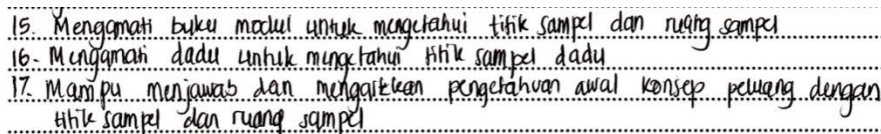 15. Mengamati buku modul untuk mengetahui titik sampel dan ruang sampel
16. Mengamati dadu untuk mengetahui titik sampel dadu
17. Mampu menjawab dan mengaitkan pengetahuan awal konsep peluang dengan
titik sampel dan ruang sampel